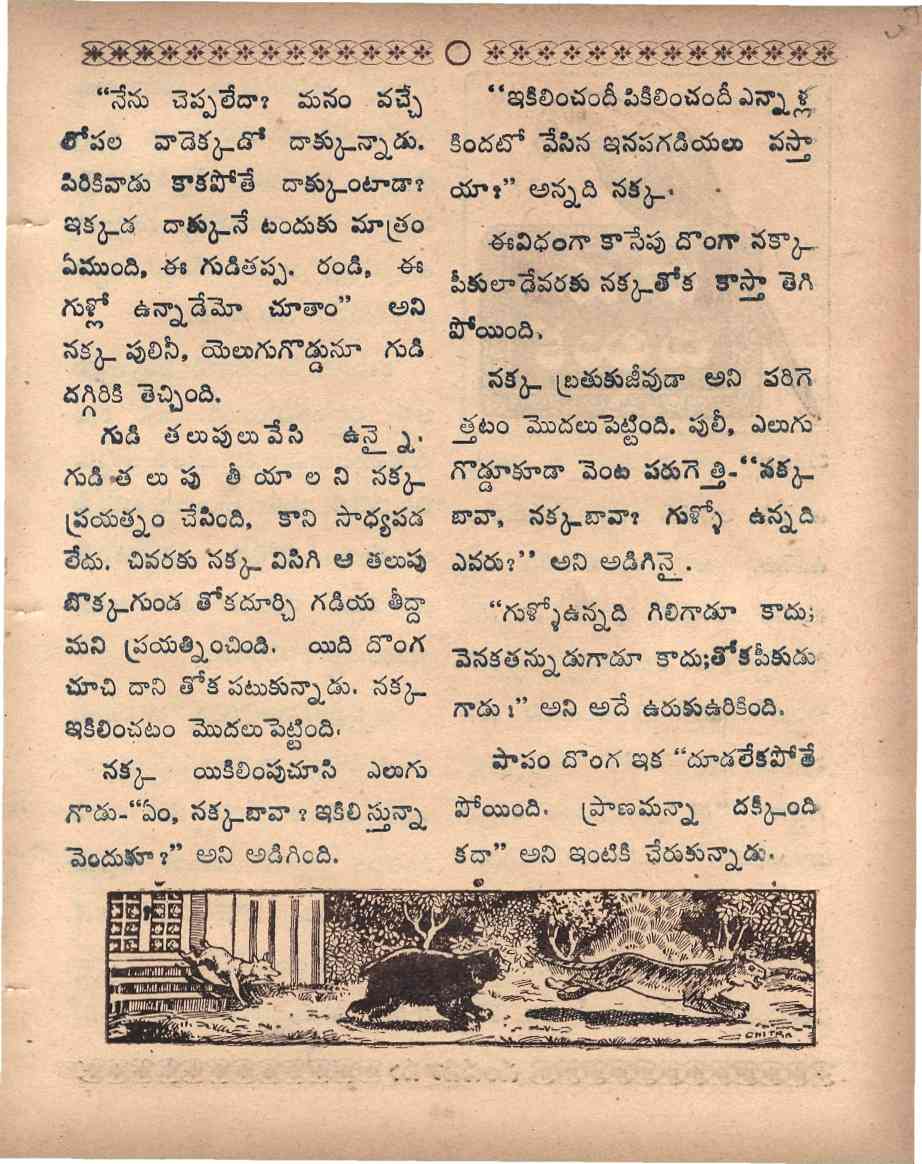 “నేను చెప్పలేదా? మనం వచ్చే
లోపల వాడెక్కడో దాక్కున్నాడు.
పిరికివాడు కాకపోతే దాక్కుంటాడా?
ఇక్కడ దాక్కునే టందుకు మాత్రం
ఏముంది, ఈ గుడితప్ప. రండి, ఈ
గుళ్లో ఉన్నాడేమో చూతాం” అని
నక్క పులినీ, యెలుగుగొడ్డునూ గుడి
దగ్గిరికి తెచ్చింది.
గుడి తలుపులువేసి ఉన్నై.
గుడి త లు పు తీ యా ల ని నక్క
ప్రయత్నం చేసింది, కాని సాధ్యపడ
లేదు. చివరకు నక్క విసిగి ఆ తలుపు
బొక్కగుండ తోకదూర్చి గడియ తీద్దా
మని ప్రయత్నించిండి. యిది దొంగ
చూచి దాని తోక పటుకున్నాడు. నక్క
ఇకిలించటం మొదలుపెట్టింది.
నక్క యికిలింపుచూసి ఎలుగు
గొడు-“ఏం, నక్కబావా? ఇకిలిస్తున్నా
వెందుకూ?” అని అడిగింది.
“ఇకిలించందీ పికిలించందీ ఎన్నాళ్ల
కిందటో వేసిన ఇనపగడియలు వస్తా
యా?” అన్నది నక్క.
ఈవిధంగా కాసేపు దొంగా నక్కా
పీకులాడేవరకు నక్కతోక కాస్తా తెగి
పోయింది.
నక్క బ్రతుకుజీవుడా అని పరిగె
త్తటం మొదలుపెట్టింది. పులీ, ఎలుగు
గొడ్డూకూడా వెంట పరుగెత్తి-“నక్క
బావా, నక్కబావా? గుళ్ళో ఉన్నది
ఎవరు?” అని అడిగినై.
“గుళ్ళోఉన్నది గిలిగాడూ కాదు;
వెనకతన్నుడుగాడూ కాదు;తోకపీకుడు
గాడు!” అని అదే ఉరుకుఉరికింది.
పాపం దొంగ ఇక “దూడలేకపోతే
పోయింది. ప్రాణమన్నా దక్కింది
కదా” అని ఇంటికి చేరుకున్నాడు.
CHITRA